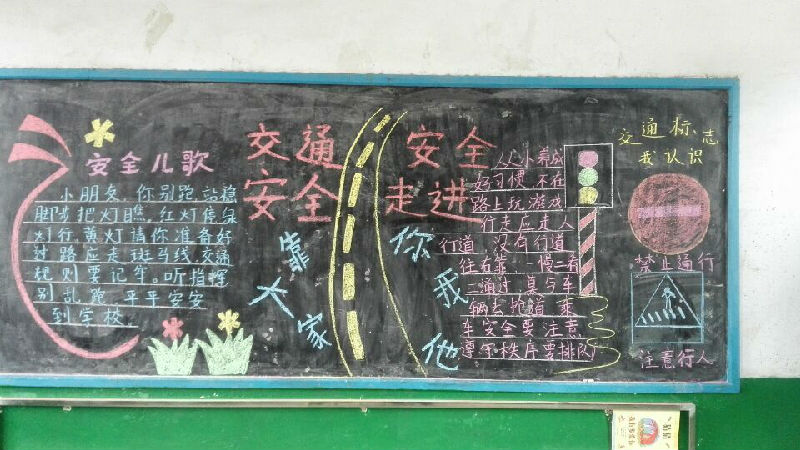 安全儿歌
小朋友，你别跑，站稳
脚步把灯瞧，红灯停绿
灯行黄灯请你准备好
过路应走斑马线，交通
规则要记牢。听指挥
别乱跑 平平安安
到学校
交通
安全
靠
大
家
安全
走进
你
我
他
从小养成
好习惯 不在
路上玩游戏
行走应走人
行道 没有行道
往右靠 一慢二看
三通过 莫与车
辆去抢道 乘
车安全要注意
遵守秩序要排队
交通标志
我认识
禁止通行
注意行人